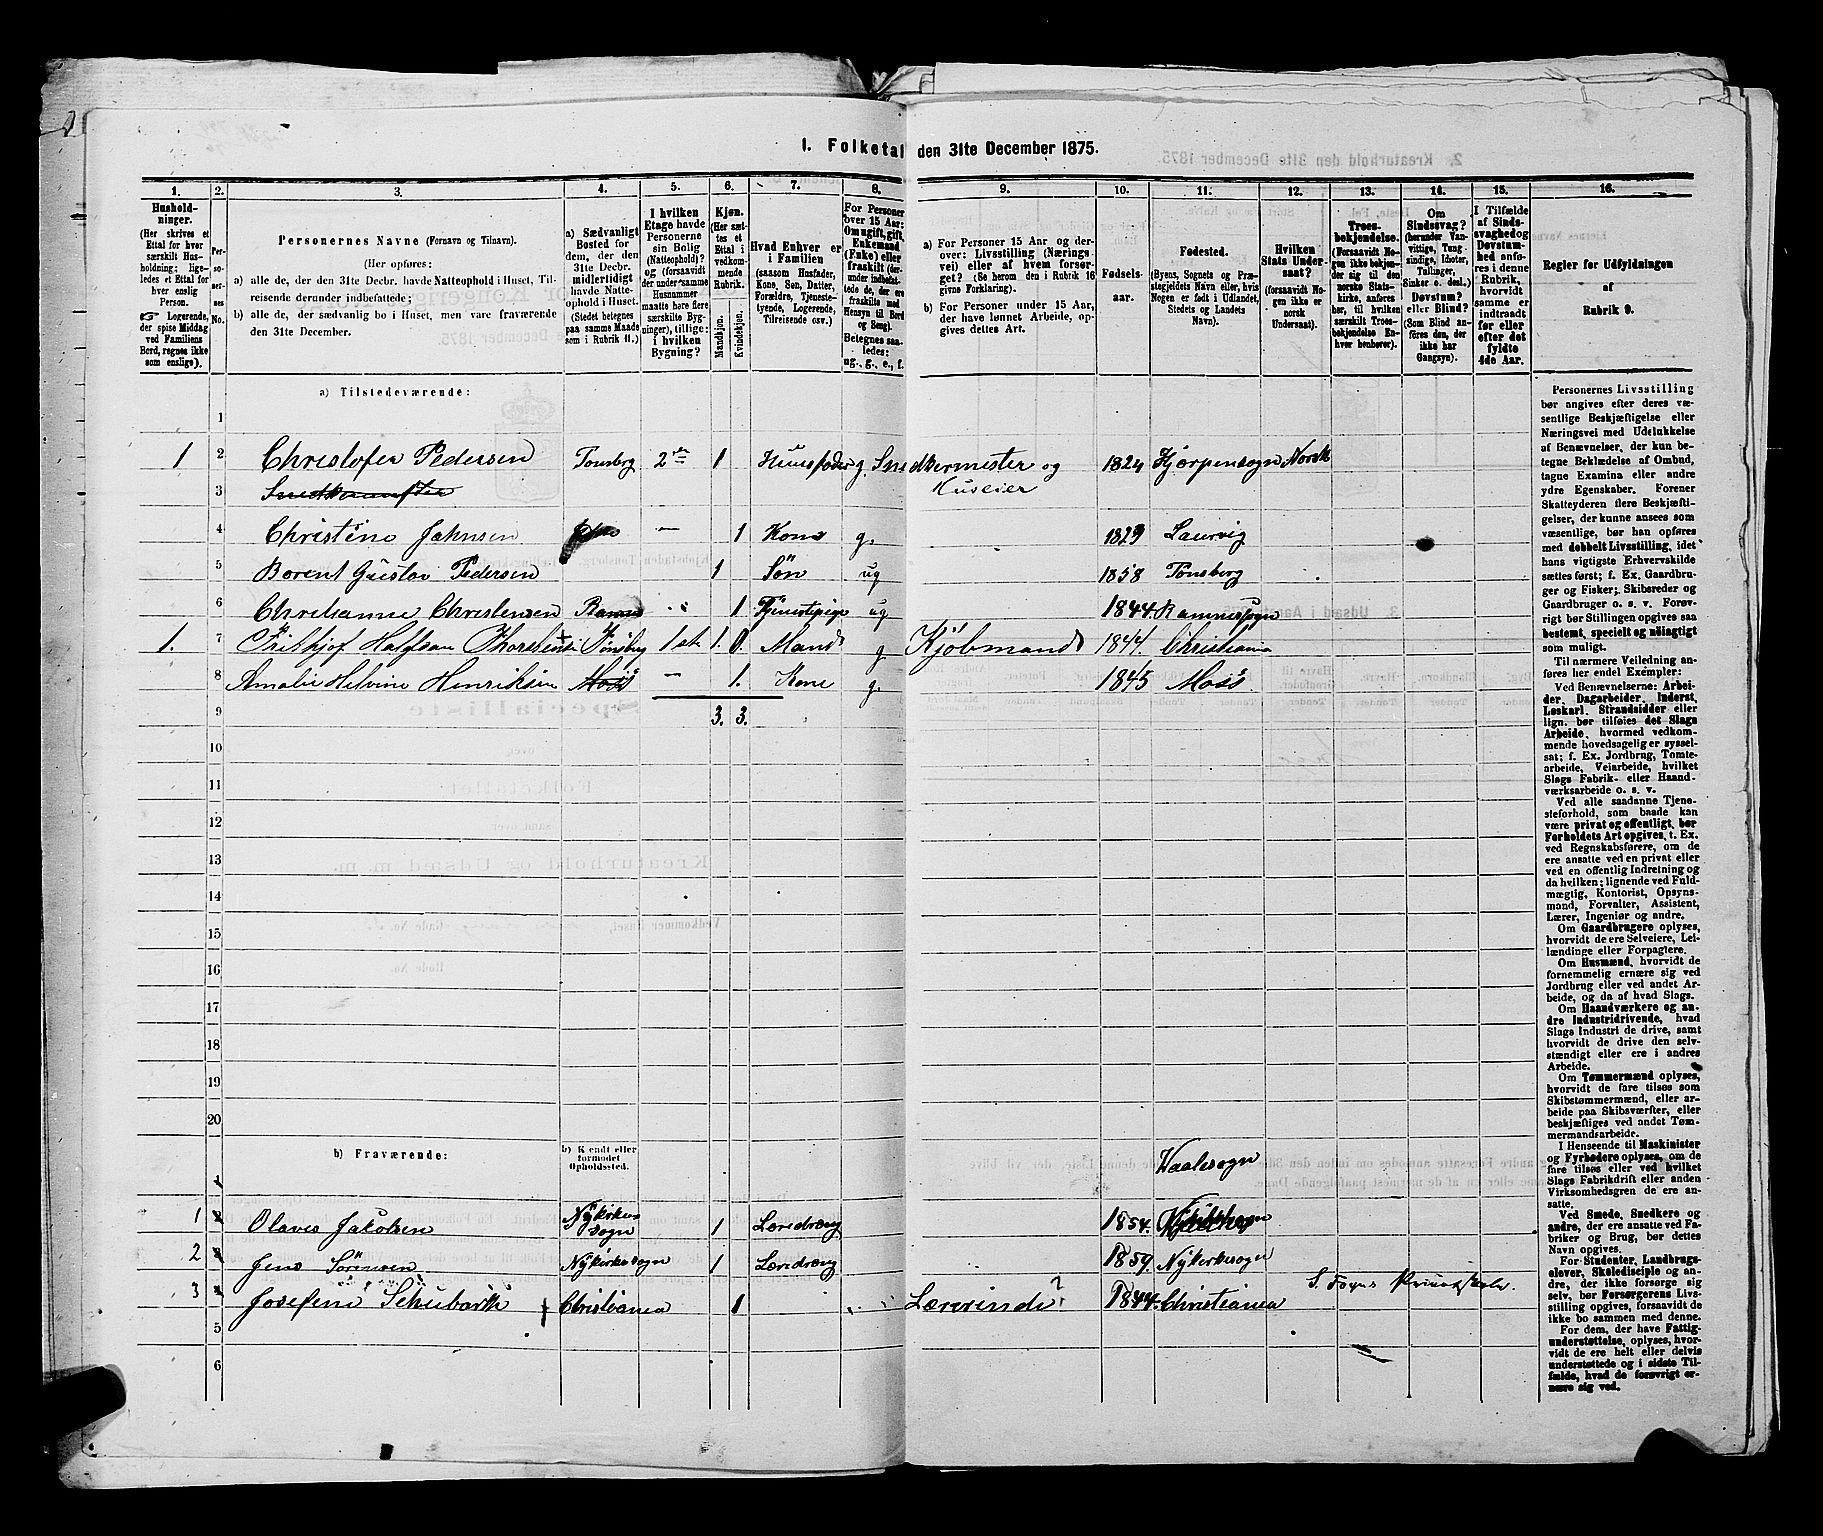 1. Folketal den 31te December 1875.
1. 2. 3. 4. 5. 6. 7. 8. 9. 10. 11. 12. 13. 14. 15. 16.
Husholdninger.
(Her skrives et
Ettal for hver
særskilt Husholdning;
ligeledes et Ettal for
hver enslig
Person.
☞ Logerende,
der spise Middag
ved Familiens
Bord, regnes ikke
som enslige).
Personernes No.
Personernes Navne (Fornavn og Tilnavn).
(Her opføres:
a) alle de, der den 31te Decbr. havde Natteophold i Huset, Tilreisende
derunder indbefattede;
b) alle de, der sædvanlig bo i Huset, men vare fraværende
den 31te December.
a) Sædvanligt
Bosted for
dem, der den
31te Decbr.
midlertidigt
havde Natteophold
i Huset.
(Stedet betegnes
paa samme Maade
som i Rubrik 11.)
I hvilken
Etage havde
Personerne
sin Bolig
(Natteophold)?
og (forsaavidt
der under samme
Husnummer
maatte høre flere
særskilte Bygninger),
tillige:
i hvilken
Bygning?
Kjøn.
(Her sættes
et
Ettal i
vedkommende
Rubrik.
Mandkjøn.
Kvindekjøn.
Hvad Enhver er
i Familien
(saasom Husfader,
Kone, Søn, Datter,
Forældre, Tjenestetyende,
Logerende,
Tilreisende osv.)
For Personer
over 15 Aar:
Om ugift, gift,
Enkemand
(Enke) eller
fraskilt
Betegnes saaledes:
ug., g., e., f.
a) For Personer 15 Aar og derover:
Livsstilling (Næringsvei)
eller af hvem forsørget?
(Se herom den i Rubrik 16
givne Forklaring).
b) For Personer under 15 Aar,
der have lønnet Arbeide, opgives
dettes Art.
Fødselsaar.
Fødested.
(Byens, Sognets og Præstegjeldets
Navn eller, hvis
Nogen er født i Udlandet,
Stedets og Landets
Navn).
Hvilken
Stats Undersaat?
(forsaavidt Nogen
ikke er
norsk
Undersaat).
Troesbekjendelse.
(Forsaavidt Nogen
ikke bekjender
sig til den
norske Statskirke,
anføres
her, til hvilken
særskilt Troesbekjendelse
Enhver
henhører).
Om
Sindssvag?
(herunder Vanvittige,
Tungsindige,
Idioter,
Tullinger,
Sinker o. desl.)
Døvstum?
eller Blind?
(Som Blind anføres
den, der
ikke har
Gangsyn).
I Tilfælde
af Sindssvaghed
og
Døvstumhed
anføres
i denne
Rubrik,
hvorvidt
samme er
indtraadt
før eller
efter det
fyldte
4de Aar.
Regler for Udfyldningen
af
Rubrik 9.
a) Tilstedeværende:
1
1 2 Christofer Pedersen Tønsberg 2 1 Huusfader g. Snedkermester og 1824 Hjerpensogn Norsk
3 Snedkermester Huseier
4 Christine Jahnsen 1 Kone g. 1829 Laurvig
5 Borent Gustav Pedersen 1 Søn ug 1858 Tønsberg
6 Christianne Christensen 1 Tjenestepige ug 1844 Ramnessogn
1. 7 Frithjof Halfdan Thorstensen Tønsberg 1ste 1. 0 Mand g Kjøbmand 1844. Christiania
8 Amalie Helvine Henriksen Moss 1. Kone g. 1845 Moss
9 3. 3.
10
11
12
13
14
15
16
17
18
19
20
b) Fraværende:
b) Kjendt eller
formodet
Opholdssted.
1 Vaalesogn
1 2 Olaves Jakobsen Nykirkesogn 1 Læredreng 1854.
2 3 Jens Sørensen Nykirkesogn 1 Læredreng 1859. Nykirkesogn
3 4 Josefine Schubarth Christiania 1 Lærerinde? 1844. Christiania S. Foyns Privatskole.
5
6
Personernes Livsstilling
bør angives efter deres væsentlige
Beskjæftigelse eller
Næringsvei med Udelukkelse
af Benævnelser, der kun betegne
Beklædelse af Ombud,
tagne Examina eller andre
ydre Egenskaber. Forener
Skatteyderen flere Beskjæftigelser,
der kunne ansees som
væsentlige, bør han opføres
med dobbelt Livsstilling, idet
hans vigtigste Erhvervskilde
sættes først; f. Ex. Gaardbruger
og Fisker; Skibsreder og
Gaardbruger o. s. v. Forøvrigt
bør Stillingen opgives saa
bestemt, specielt og nøiagtigt
som muligt.
Til nærmere Veiledning anføres
her endel Exempler:
Ved Benævnelserne: Arbeider,
Dagarbeider, Inderst,
Løskarl, Strandsidder eller
lign. bør tilføies det Slags
Arbeide, hvormed vedkommende
hovedsagelig er sysselsat;
f. Ex. Jordbrug, Tomtearbeide,
Veiarbeide, hvilket
Slags Fabrik- eller Haandværksarbeide
o. s. v.
Ved alle saadanne Tjenesteforhold,
som baade kan
være privat og offentligt, bør
Forholdets Art opgives, t. Ex.
ved Regnskabsførere, om de
ere ansatte ved en privat eller
ved en offentlig Indretning og
da hvilken; lignende ved Fuldmægtig,
Kontorist, Opsynsmand,
Forvalter, Assistent,
Lærer, Ingeniør og andre.
Om Gaardbrugere oplyses,
hvorvidt de ere Selveiere, Leilændinge
eller Forpagtere.
Om Husmænd, hvorvidt de
fornemmelig ernære sig ved
Jordbrug eller ved andet Arbeide,
og da af hvad Slags.
Om Haandværkere og andre
Industridrivende, hvad
Slags Industri de drive, samt
hvorvidt de drive den selvstændigt
eller ere i andres
Arbeide.
Om Tømmermænd oplyses,
hvorvidt de fare tilsøs som
Skibstømmermænd, eller arbeide
paa Skibsværfter, eller
beskjæftiges ved andet Tømmermandsarbeide.
I Henseende til Maskinister
og Fyrbødere oplyses, om de
fare tilsøs eller ved hvilket
Slags Fabrikdrift eller anden
Virksomhedsgren de ere ansatte.
Ved Smede, Snedkere og
andre, der ere ansatte ved Fabriker
og Brug, bør dettes
Navn opgives.
For Studenter, Landbrugselever,
Skoledisciple og andre,
der ikke forsørge sig
selv, bør Forsørgerens Livsstilling
opgives, forsaavidt de
ikke bo sammen med denne.
For dem, der have Fattigunderstøttelse,
oplyses, hvorvidt
de ere helt eller delvis
understøttede og i sidste Tilfælde,
hvad de forøvrigt ernære
sig ved.